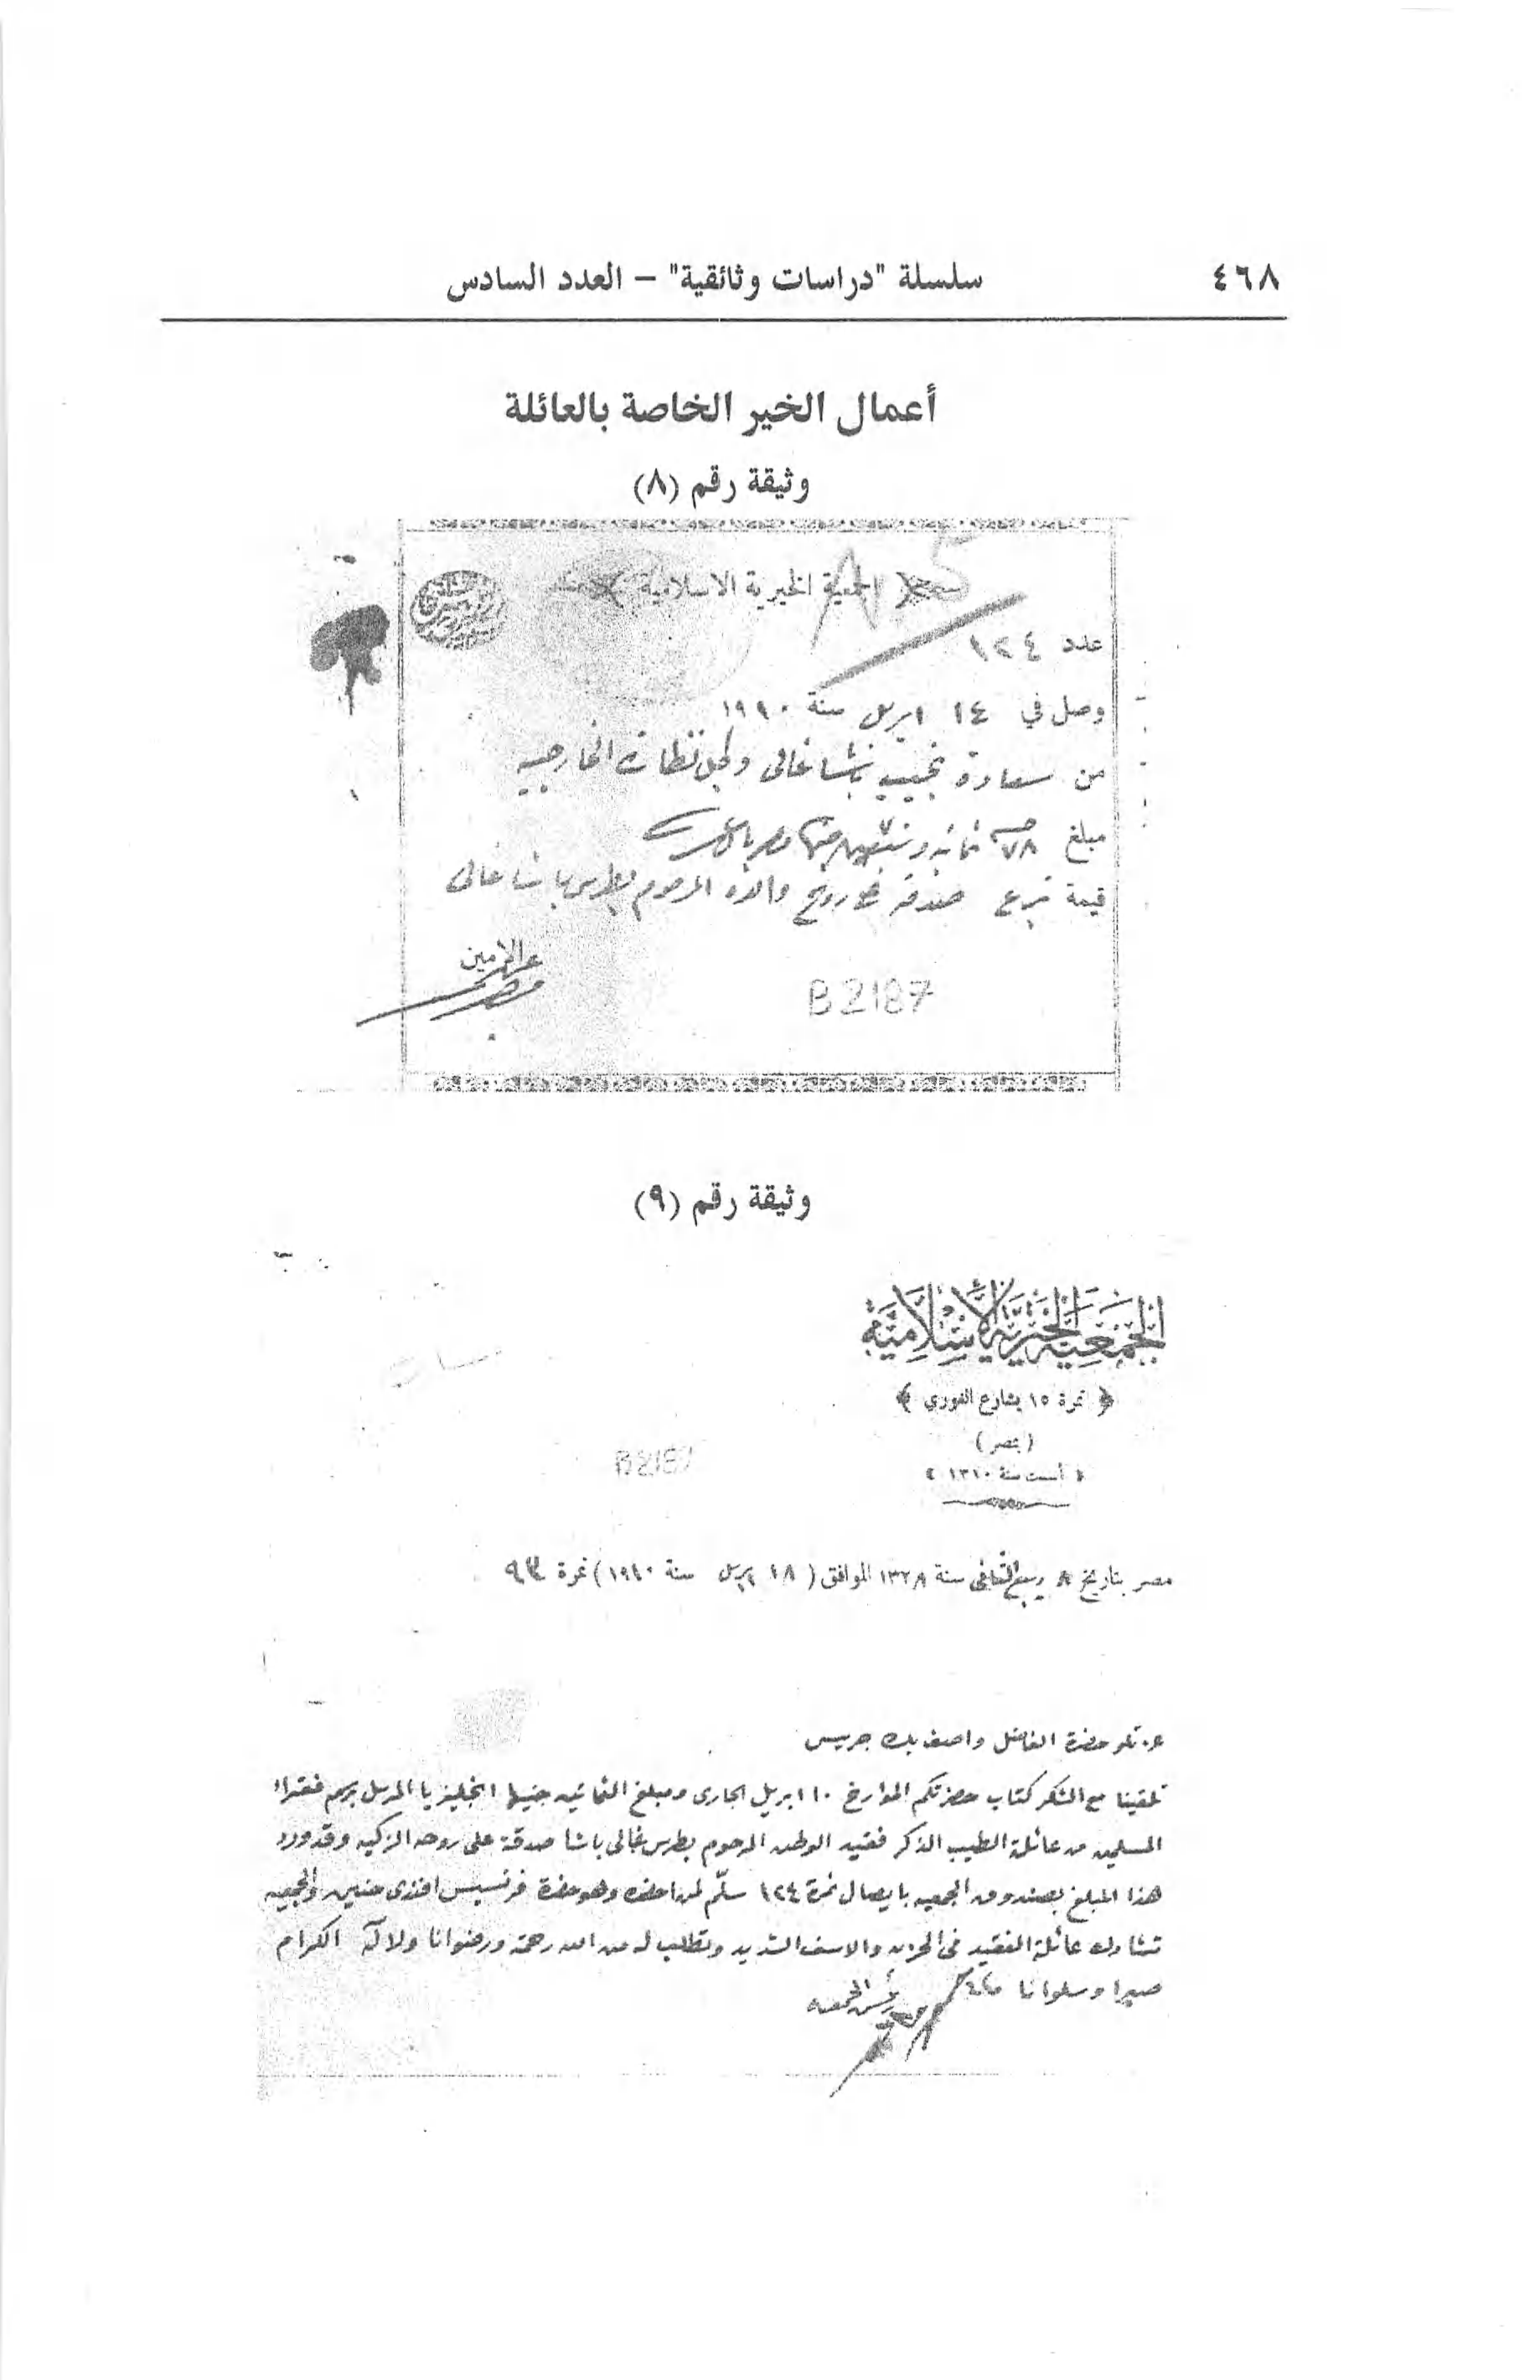 ٤٦٨
سلسلة "دراسات وثائقية" – العدد السادس
أعمال الخير الخاصة بالعائلة
وثيقة رقم (٨)
الجمعية الخيرية الاسلامية
عدد ١٢٤
وصل في ١٤ ابريل سنة ١٩١٠
من سعادة نجيب باشا غالى وكيل نظارة الخارجيه
مبلغ ٧٨ ثمانيه وسبعين جنيها مصريا
قيمة تبرع صدقه على روح والده المرحوم بطرس باشا غالى
B2187
وثيقة رقم (٩)
الجمعية الخيرية الإسلامية
﴿ نمرة ١٥ بشارع الغوري ﴾
(بمصر)
أسست سنة ١٣١٠
B2187
مصر بتاريخ ٨ ربيع الثانى سنة ١٣٢٨ الموافق (١٨ ابريل سنة ١٩١٠) نمرة ٩٣
حضرة الفاضل واصف بك جريس
تلقينا مع الشكر كتاب حضرتكم المؤرخ ١٠ ابريل الجارى ومبلغ الثمانين جنيها انجليزيا المرسل برسم فقراء
المسلمين من عائلة الطيب الذكر فقيد الوطن المرحوم بطرس غالى باشا صدقة على روحه الزكيه وقد ورد
هذا المبلغ بصندوق الجمعيه بايصال نمرة ١٢٤ سلّم لمن احضره وهو حضرة فرنسيس افندى حنين والجمعيه
تشارك عائلة الفقيد فى الحزن والاسف الشديد وتطلب له من الله رحمة ورضوانا ولآله الكرام
صبرا وسلوانا
رئيس الجمعيه